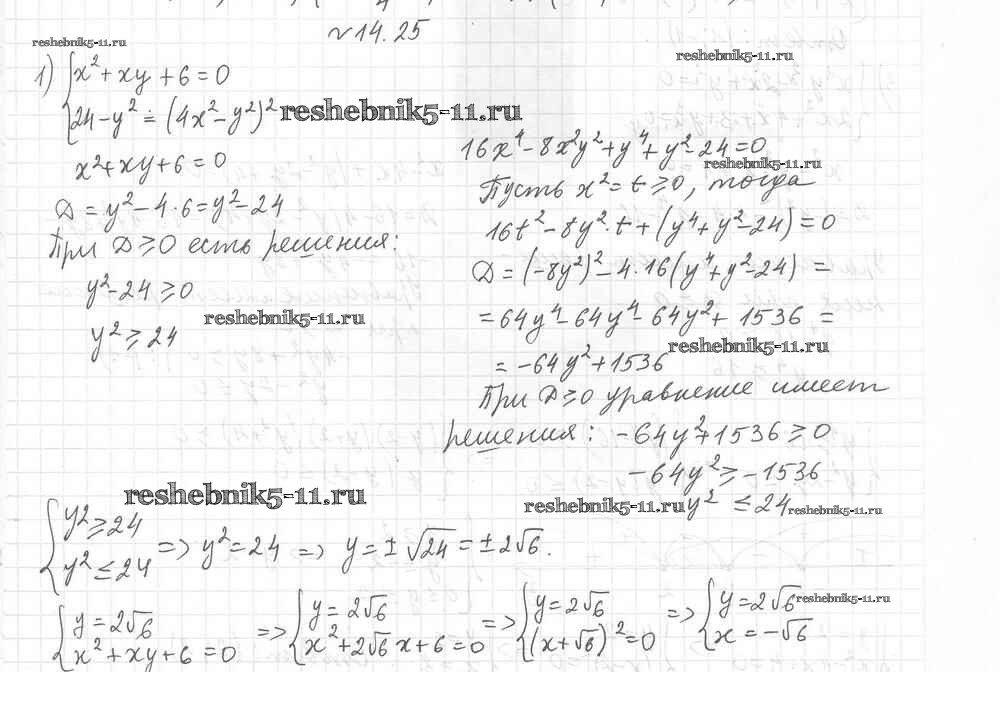 №14.25
reshebnik5-11.ru
reshebnik5-11.ru
1) {x² + xy + 6 = 0
{24 - y² = (4x² - y²)² reshebnik5-11.ru
x² + xy + 6 = 0
D = y² - 4·6 = y² - 24
При D ≥ 0 есть решения:
y² - 24 ≥ 0
reshebnik5-11.ru
y² ≥ 24
16x⁴ - 8x²y² + y⁴ + y² - 24 = 0
reshebnik5-11.ru
Пусть x² = t ≥ 0, тогда
16t² - 8y²·t + (y⁴ + y² - 24) = 0
D = (-8y²)² - 4·16(y⁴ + y² - 24) =
= 64y⁴ - 64y⁴ - 64y² + 1536 =
reshebnik5-11.ru
= -64y² + 1536
При D ≥ 0 уравнение имеет
решения: -64y² + 1536 ≥ 0
-64y² ≥ -1536
reshebnik5-11.ru y² ≤ 24 reshebnik5-11.ru
reshebnik5-11.ru
{y² ≥ 24
{y² ≤ 24 => y² = 24 => y = ± √24 = ± 2√6.
{y = 2√6
{x² + xy + 6 = 0
=> {y = 2√6
{x² + 2√6 x + 6 = 0
=> {y = 2√6
{(x + √6)² = 0
=> {y = 2√6 reshebnik5-11.ru
{x = -√6